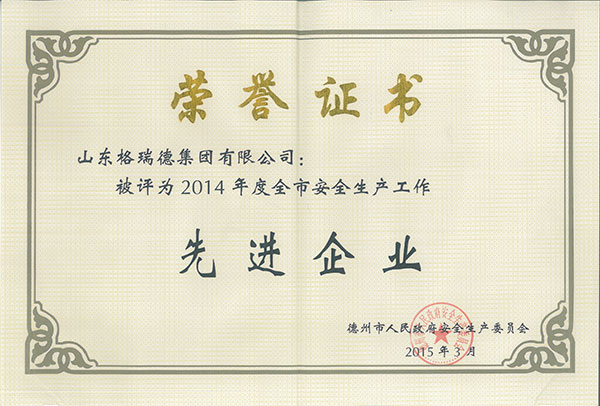 荣誉证书
山东格瑞德集团有限公司：
被评为2014年度全市安全生产工作
先进企业
德州市人民政府安全生产委员会
2015年3月